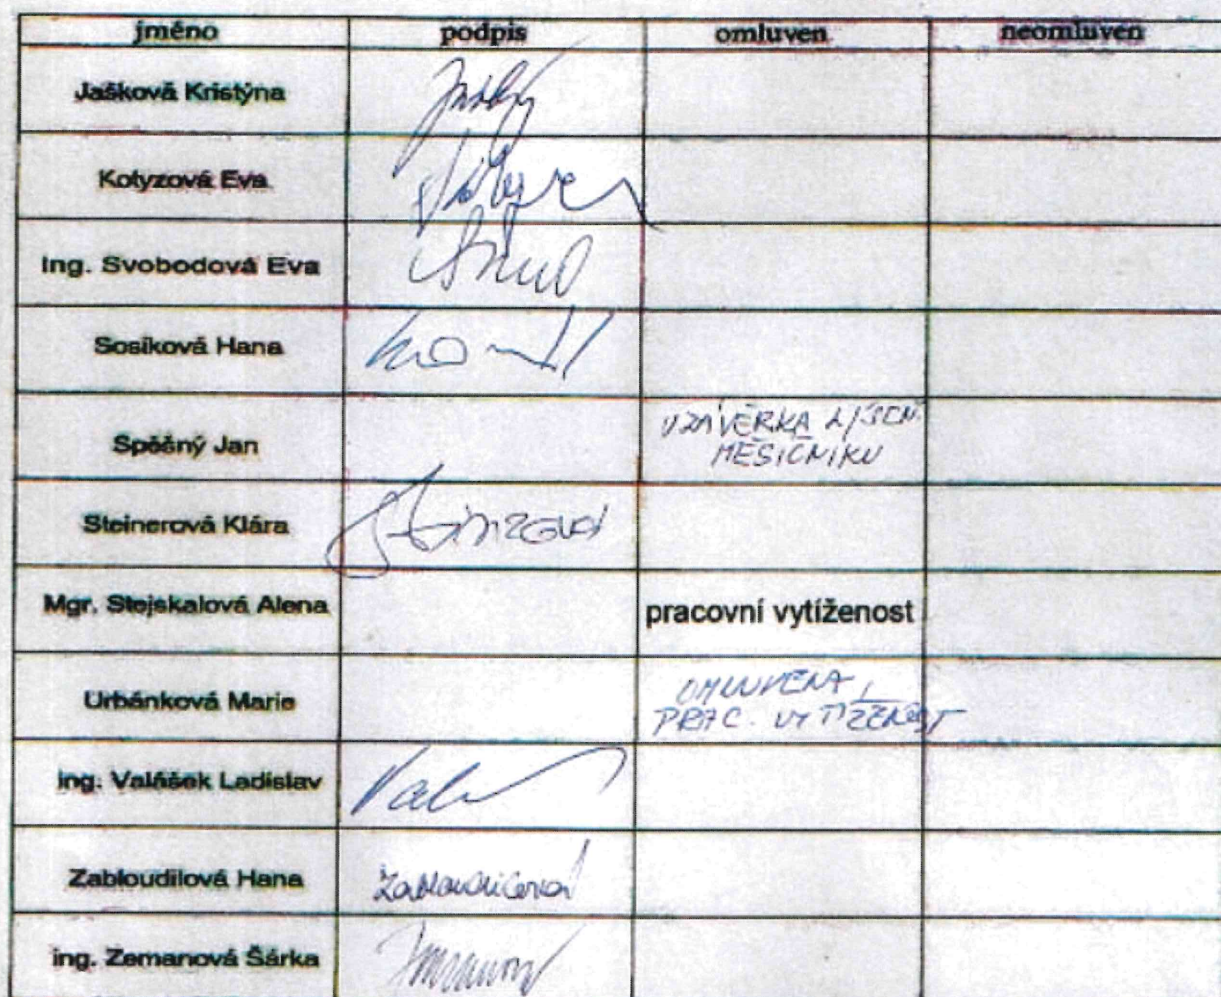 jméno podpis omluven neomluven
Jašková Kristýna
Kotyzová Eva
Ing. Svobodová Eva
Sosíková Hana
Spěšný Jan UZÁVĚRKA LÍŠEŇ.
MĚSÍČNÍKU
Steinerová Klára
Mgr. Stejskalová Alena pracovní vytíženost
Urbánková Marie OMLUVENA,
PRAC. VYTÍŽENOST
ing. Valášek Ladislav
Zabloudilová Hana Zabloudilová
ing. Zemanová Šárka